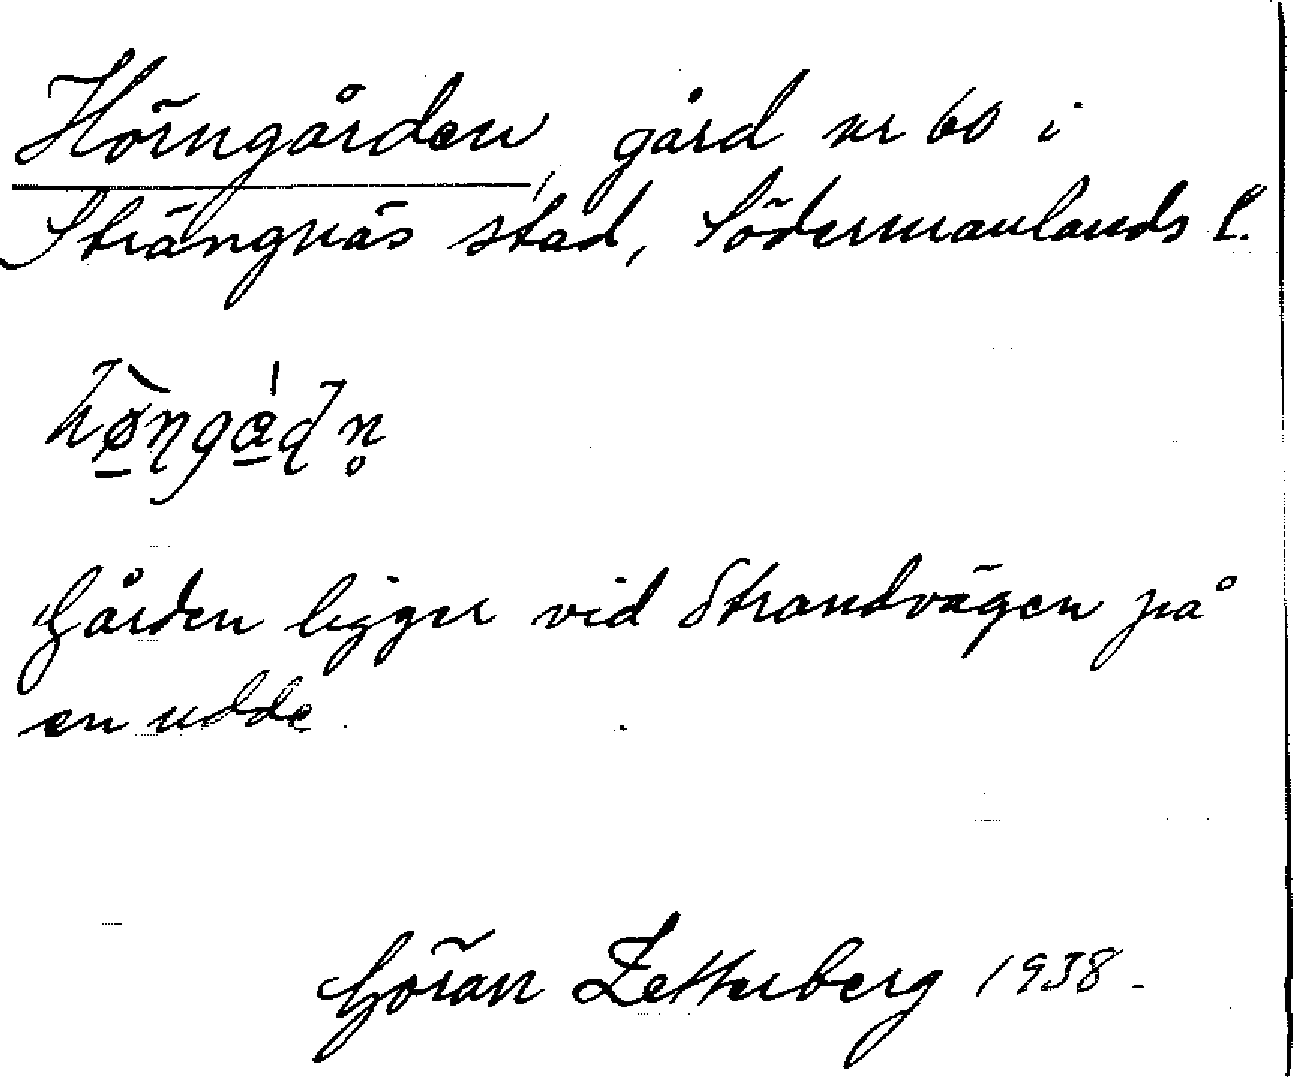 Hörngården, gård nr 60 i
Strängnäs stad, Södermanlands l.
hø̠̀ŋgɑ̠́ɖn̥
Gården ligger vid Strandvägen på
en udde.
Göran Zetterberg 1938.